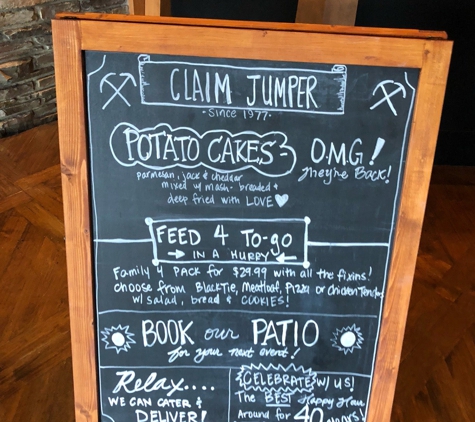 CLAIM JUMPER
-Since 1977-
POTATO CAKES-
O.M.G!
They're Back!
parmesan, jack & cheddar
mixed w/ mash- breaded &
deep fried with LOVE
FEED 4 To-go
IN A HURRY
Family 4 PACK for $29.99 with all the fixins!
choose from BlackTie, Meatloaf, Pizza or Chicken Tenders
w/ salad, bread & COOKIES!
BOOK our PATIO
for your next event!
Relax....
WE CAN CATER &
DELIVER!
CELEBRATE w/ US!
The BEST Happy Hour
Around for 40 years!